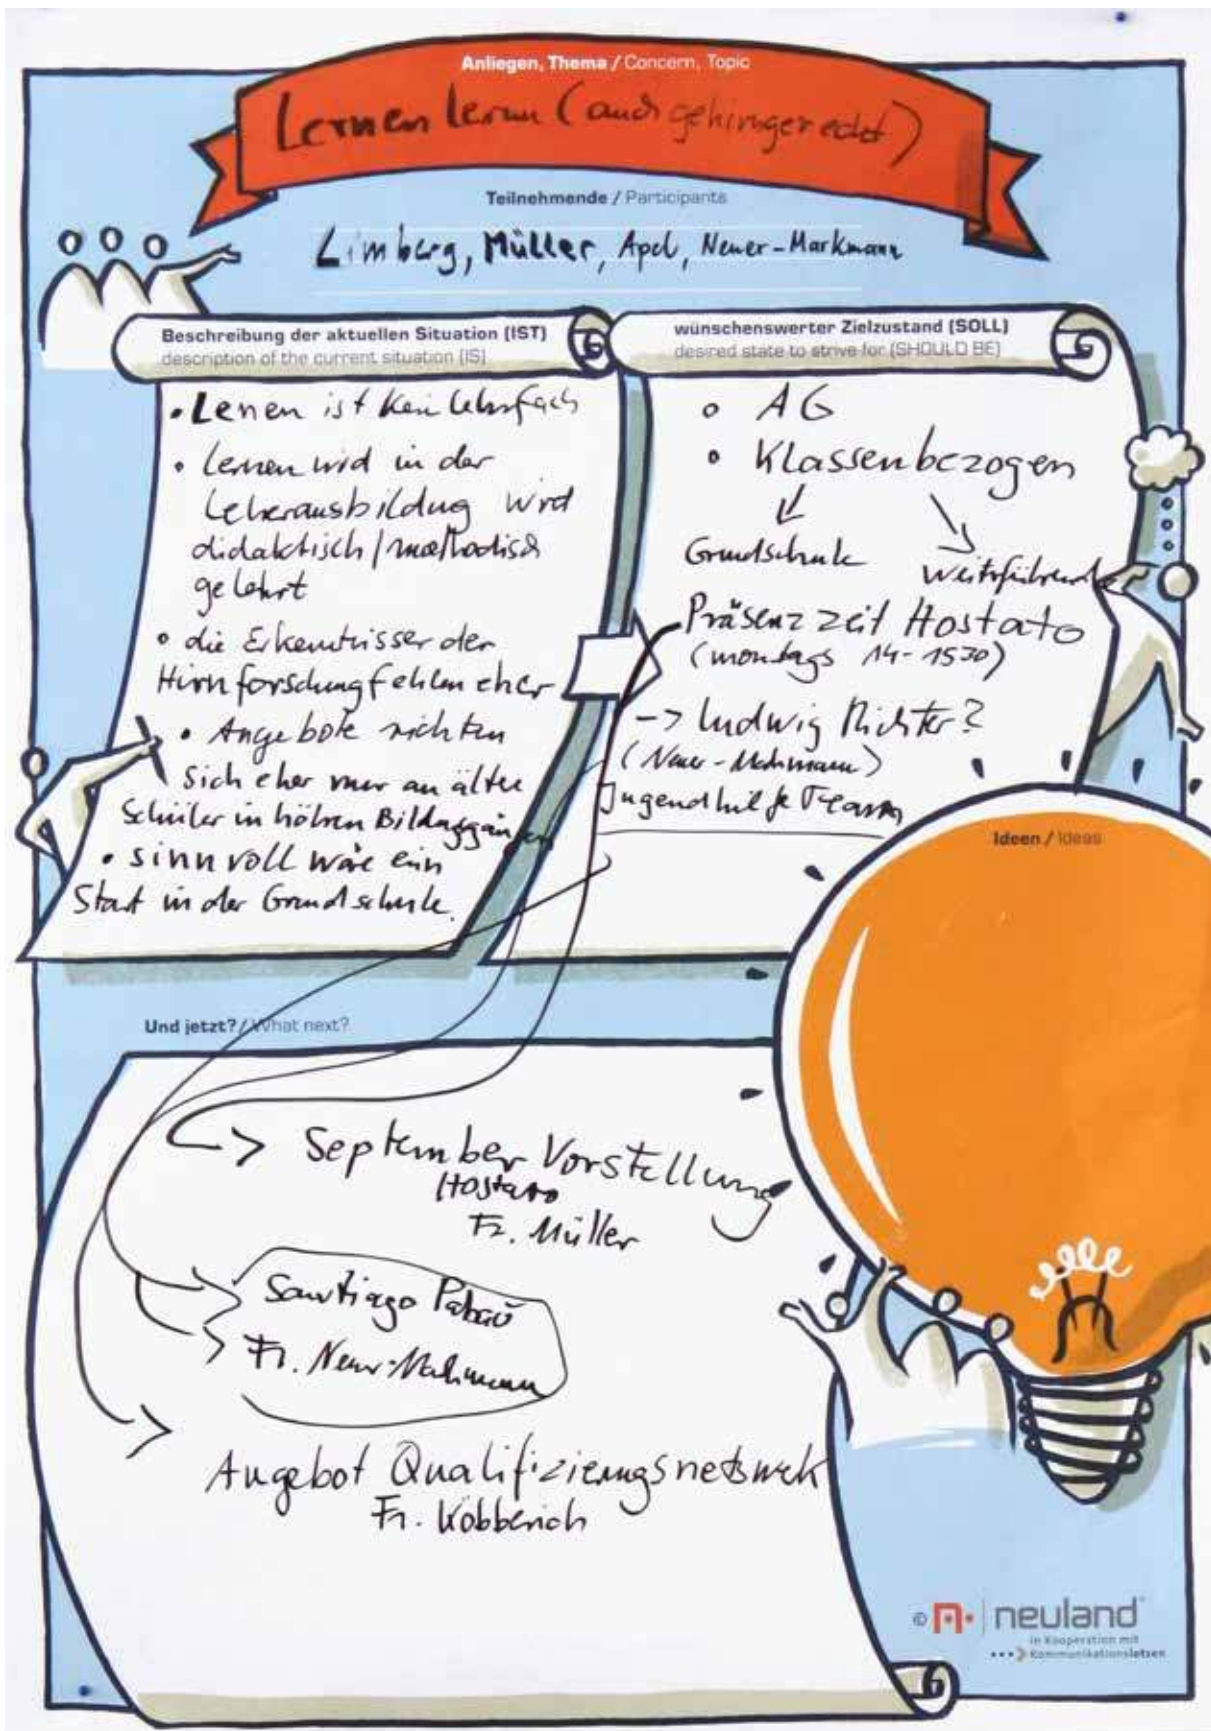 Anliegen, Thema / Concern, Topic
Lernen lernen (auch gehirngerecht)
Teilnehmende / Participants
Limberg, Müller, Apel, Neuer-Markmann
Beschreibung der aktuellen Situation (IST)
description of the current situation (IS)
• Lenen ist kein Lehrfach
• Lernen wird in der
Leherausbildung wird
didaktisch / methodisch
gelehrt
• die Erkentnisser der
Hirnforschung fehlen eher
• Angebote richten
sich eher nur an ältere
Schüler in höhren Bildungsgängen
• sinnvoll wäre ein
Start in der Grundschule.
wünschenswerter Zielzustand (SOLL)
desired state to strive for (SHOULD BE)
• AG
• Klassenbezogen
Grundschule
Weiterführende
Präsenzzeit Hostato
(montags 14-1530)
-> Ludwig Richter?
(Neuer-Mahmann)
Jugendhilfe Team
Ideen / Ideas
Und jetzt? / What next?
-> September Vorstellung
Hostato
Fr. Müller
Santiago
Fr. Neuer-Mahmann
Angebot Qualifizierungsnetzwerk
Fr. Köbberich
© n • neuland
in Kooperation mit
Kommunikationslotsen